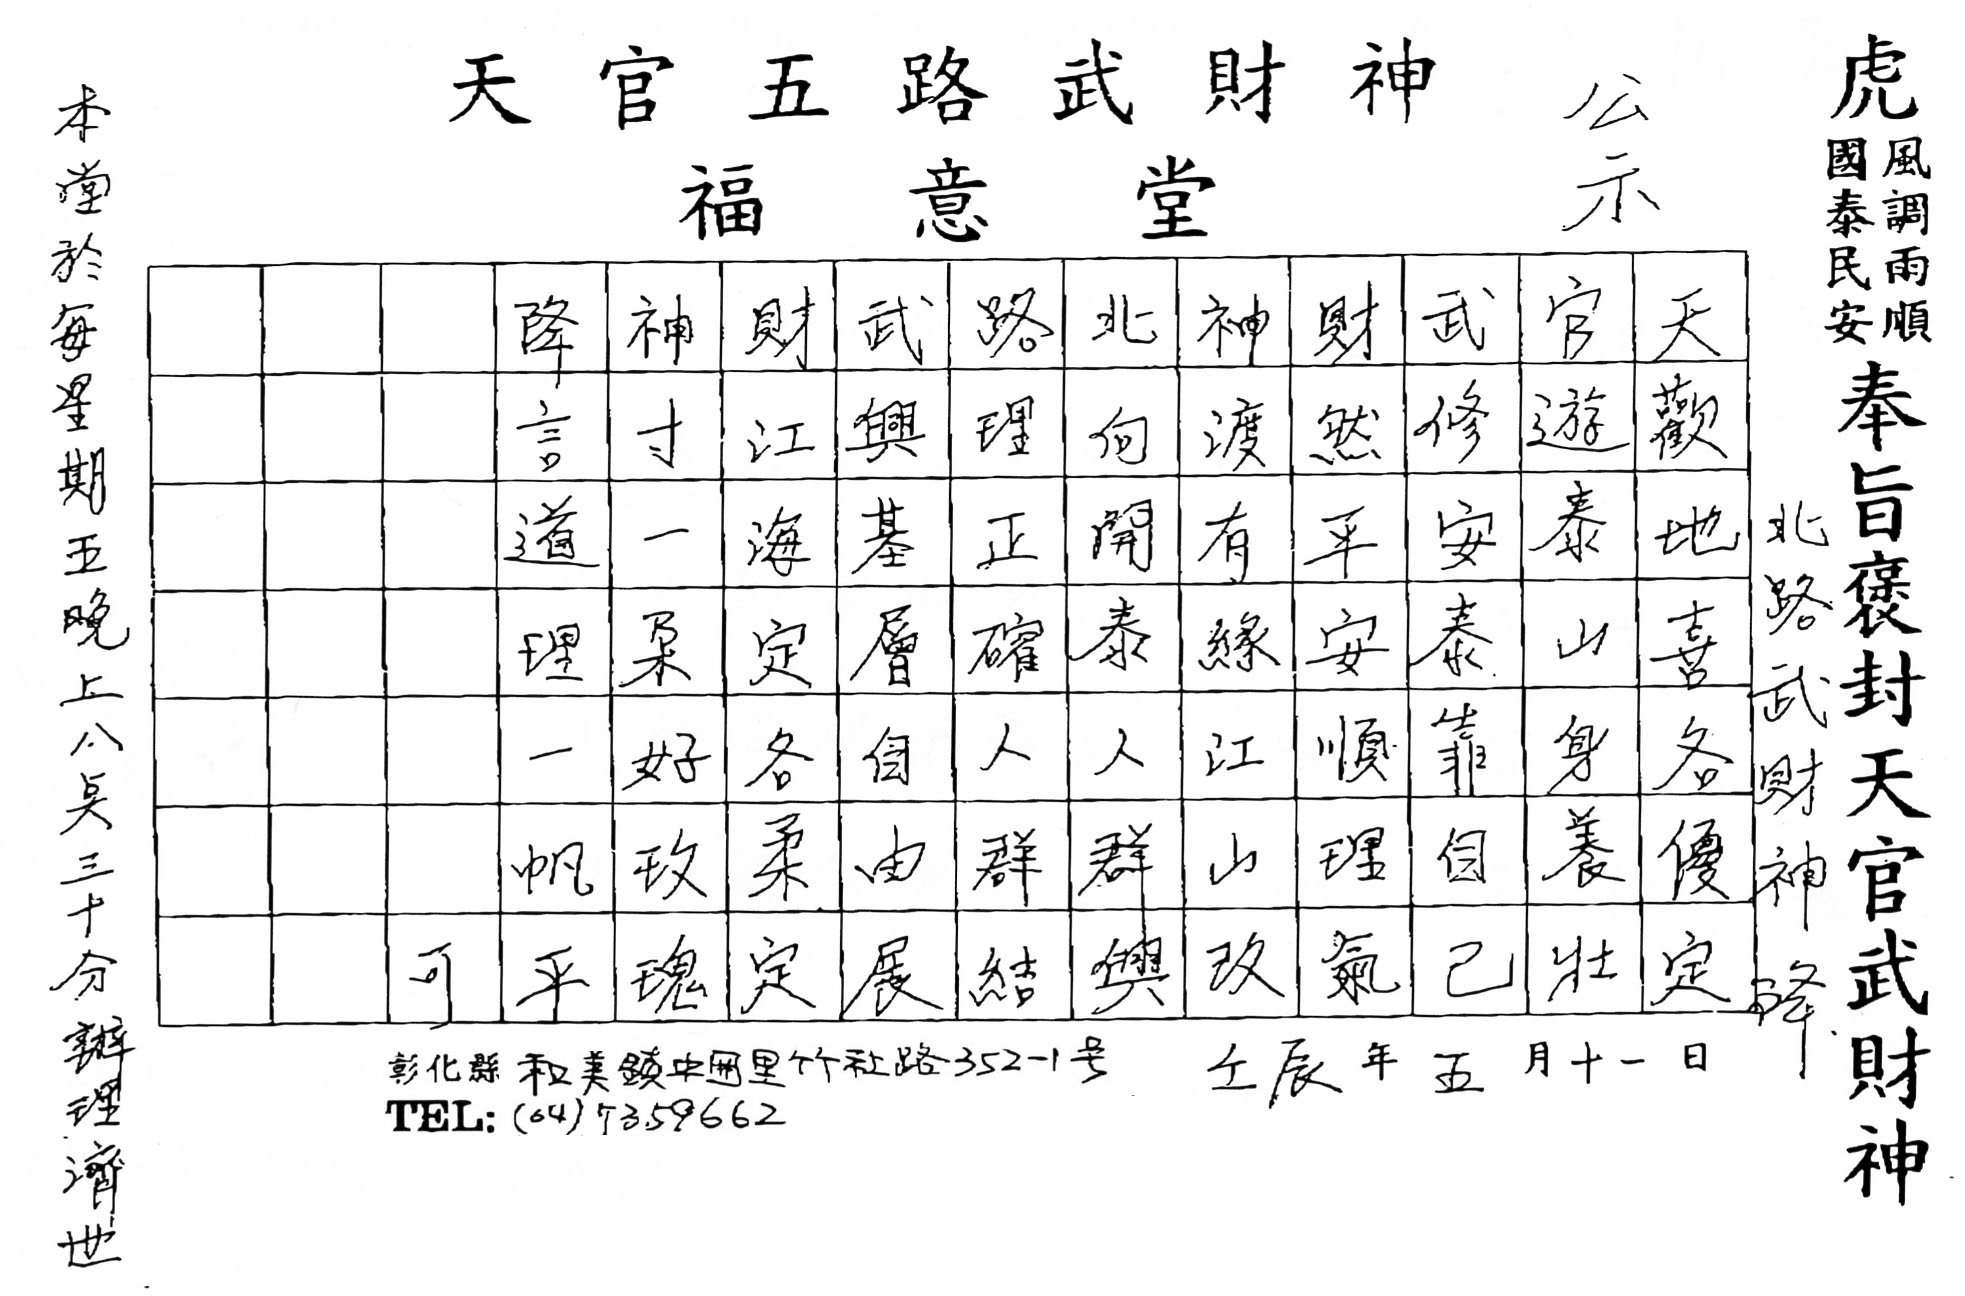 天官五路武財神
福意堂
公示
虎
風調雨順
國泰民安
奉旨褒封天官武財神
北路武財神降
天觀地喜各優定
官遊泰山身養壯
武修安泰靠自己
財然平安順理氣
神渡有緣江山玫
北向開泰人群興
路理正確人群結
武興基層自由展
財江海定各柔定
神寸一柔好玫瑰
降言道理一帆平
可
壬辰年五月十一日
彰化縣和美鎮中圍里竹社路352-1号
TEL:(04)7359662
本堂於每星期五晚上八点三十分辦理濟世